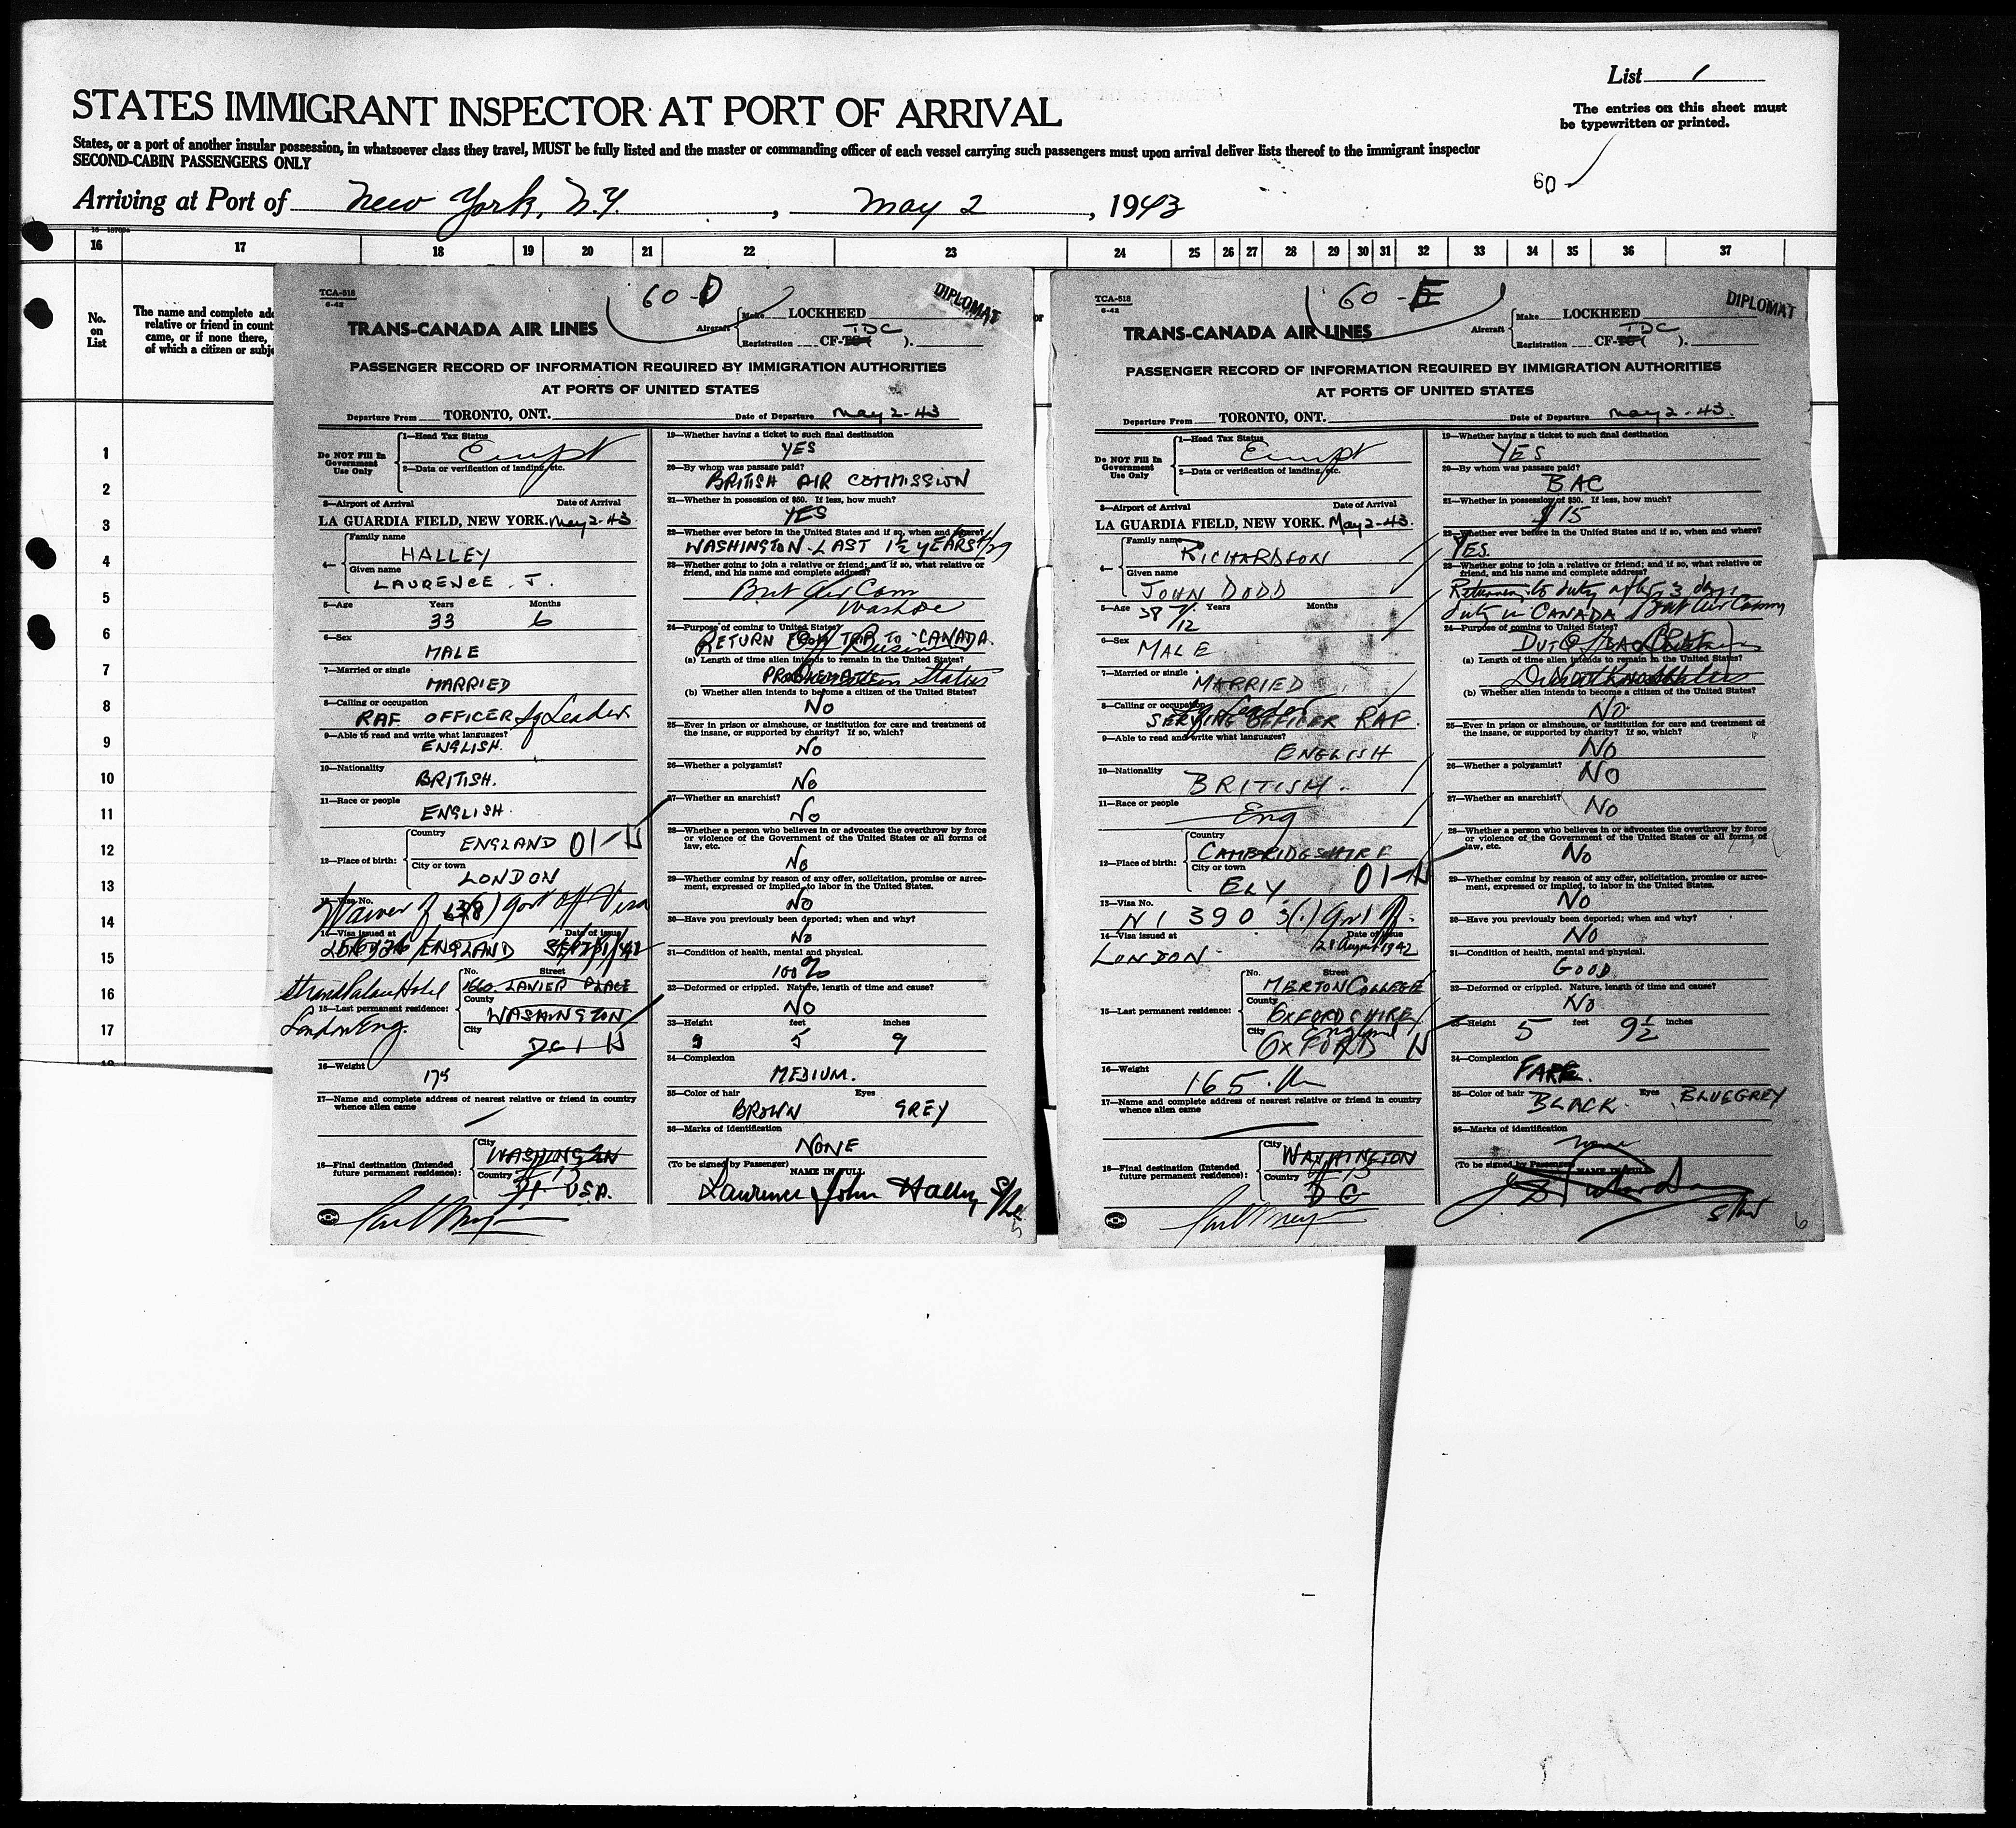 List 1
STATES IMMIGRANT INSPECTOR AT PORT OF ARRIVAL
The entries on this sheet must
be typewritten or printed.
States, or a port of another insular possession, in whatsoever class they travel, MUST be fully listed and the master or commanding officer of each vessel carrying such passengers must upon arrival deliver lists thereof to the immigrant inspector
SECOND-CABIN PASSENGERS ONLY
60
Arriving at Port of New York, N.Y. , May 2 , 1943
16 17 18 19 20 21 22 23 24 25 26 27 28 29 30 31 32 33 34 35 36 37
No.
on
List
The name and complete add
relative or friend in count
came, or if none there,
of which a citizen or subje
1
2
3
4
5
6
7
8
9
10
11
12
13
14
15
16
17
TCA-518
6-42
60-D
DIPLOMAT
TRANS-CANADA AIR LINES
Aircraft Make LOCKHEED
Registration CF-TC( ). TDC
PASSENGER RECORD OF INFORMATION REQUIRED BY IMMIGRATION AUTHORITIES
AT PORTS OF UNITED STATES
Departure From TORONTO, ONT. Date of Departure May 2-43
Do NOT Fill In
Government
Use Only
1—Head Tax Status
Exempt
2—Data or verification of landing, etc.
3—Airport of Arrival Date of Arrival
LA GUARDIA FIELD, NEW YORK. May 2-43
4— Family name
HALLEY
Given name
LAURENCE J.
5—Age Years Months
33 6
6—Sex
MALE
7—Married or single
MARRIED
8—Calling or occupation
RAF OFFICER Sq Leader
9—Able to read and write what languages?
ENGLISH.
10—Nationality
BRITISH.
11—Race or people
ENGLISH.
12—Place of birth: Country
ENGLAND
City or town
LONDON
13—Visa No.
Waiver of Govt Off Visa
14—Visa issued at Date of issue
ENGLAND
Strand Palace Hotel
London Eng.
15—Last permanent residence: No. Street
1660 LANIER PLACE
County
WASHINGTON
City
16—Weight
175
17—Name and complete address of nearest relative or friend in country
whence alien came
18—Final destination (Intended
future permanent residence): City
WASHINGTON
Country
U.S.A.
19—Whether having a ticket to such final destination
YES
20—By whom was passage paid?
BRITISH AIR COMMISSION
21—Whether in possession of $50. If less, how much?
YES
22—Whether ever before in the United States and if so, when and where?
WASHINGTON-LAST 1½ YEARS
23—Whether going to join a relative or friend; and if so, what relative or
friend, and his name and complete address?
Brit Air Com
Wash DC
24—Purpose of coming to United States?
RETURN FROM TRIP TO CANADA.
(a) Length of time alien intends to remain in the United States?
Status
(b) Whether alien intends to become a citizen of the United States?
No
25—Ever in prison or almshouse, or institution for care and treatment of
the insane, or supported by charity? If so, which?
No
26—Whether a polygamist?
No
27—Whether an anarchist?
No
28—Whether a person who believes in or advocates the overthrow by force
or violence of the Government of the United States or all forms of
law, etc.
No
29—Whether coming by reason of any offer, solicitation, promise or agree-
ment, expressed or implied, to labor in the United States.
No
30—Have you previously been deported; when and why?
No
31—Condition of health, mental and physical.
100%
32—Deformed or crippled. Nature, length of time and cause?
No
33—Height feet inches
5 9
34—Complexion
MEDIUM.
35—Color of hair Eyes
BROWN GREY
36—Marks of identification
NONE
(To be signed by Passenger) NAME IN FULL
Laurence John Halley S/Ldr
5
TCA-518
6-42
60-E
DIPLOMAT
TRANS-CANADA AIR LINES
Aircraft Make LOCKHEED
Registration CF-TC( ). TDC
PASSENGER RECORD OF INFORMATION REQUIRED BY IMMIGRATION AUTHORITIES
AT PORTS OF UNITED STATES
Departure From TORONTO, ONT. Date of Departure May 2-43.
Do NOT Fill In
Government
Use Only
1—Head Tax Status
Exempt
2—Data or verification of landing, etc.
3—Airport of Arrival Date of Arrival
LA GUARDIA FIELD, NEW YORK. May 2-43.
4— Family name
RICHARDSON
Given name
JOHN DODD
5—Age Years Months
38 7/12
6—Sex
MALE
7—Married or single
MARRIED
8—Calling or occupation
Sq Leader
SERVING OFFICER RAF.
9—Able to read and write what languages?
ENGLISH
10—Nationality
BRITISH.
11—Race or people
Eng
12—Place of birth: Country
CAMBRIDGESHIRE
City or town
ELY
13—Visa No.
N1 390 3(1) Govt Off.
14—Visa issued at Date of issue
LONDON 28 August 1942
15—Last permanent residence: No. Street
MERTON COLLEGE
County
OXFORDSHIRE
England
City
OXFORD
16—Weight
165
17—Name and complete address of nearest relative or friend in country
whence alien came
18—Final destination (Intended
future permanent residence): City
WASHINGTON
Country
DC
19—Whether having a ticket to such final destination
YES
20—By whom was passage paid?
BAC
21—Whether in possession of $50. If less, how much?
$15
22—Whether ever before in the United States and if so, when and where?
YES
23—Whether going to join a relative or friend; and if so, what relative or
friend, and his name and complete address?
Returning to duty after 3 days
duty in CANADA Brit Air Comm
24—Purpose of coming to United States?
(a) Length of time alien intends to remain in the United States?
(b) Whether alien intends to become a citizen of the United States?
NO
25—Ever in prison or almshouse, or institution for care and treatment of
the insane, or supported by charity? If so, which?
No
26—Whether a polygamist?
No
27—Whether an anarchist?
No
28—Whether a person who believes in or advocates the overthrow by force
or violence of the Government of the United States or all forms of
law, etc.
No
29—Whether coming by reason of any offer, solicitation, promise or agree-
ment, expressed or implied, to labor in the United States.
No
30—Have you previously been deported; when and why?
No
31—Condition of health, mental and physical.
GOOD
32—Deformed or crippled. Nature, length of time and cause?
No
33—Height feet inches
5 9½
34—Complexion
35—Color of hair Eyes
BLACK BLUEGREY
36—Marks of identification
none
(To be signed by Passenger) NAME IN FULL
6